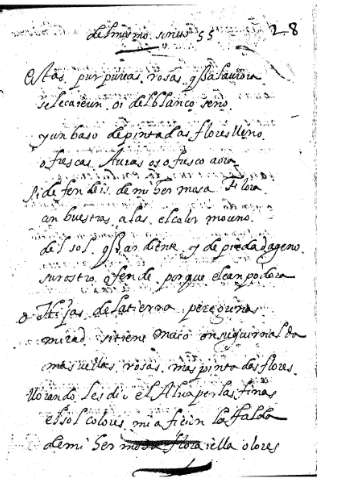 del mismo. sonus 55 28
estas purpureas, rosas, q̃ la aurora
se le caieron. oi del blanco. seno.
y un baso de pintadas flores lleno.
o frescas Auras os ofresco aora
si defendeis. de mi hermosa Flora
con buestras alas. el color moreno.
del sol q̃ ardiente y de piedad ageno.
su rostro ofende porque el campo dora
o Hijas de la tierra peregrinas
mirad. si tiene maio en su guirnalda
mas bellas rosas. mas pintadas flores.
llorando les dio el Alva perlas finas
el sol colores. mi aficion la falda
de mi hermosa flora i ella olores